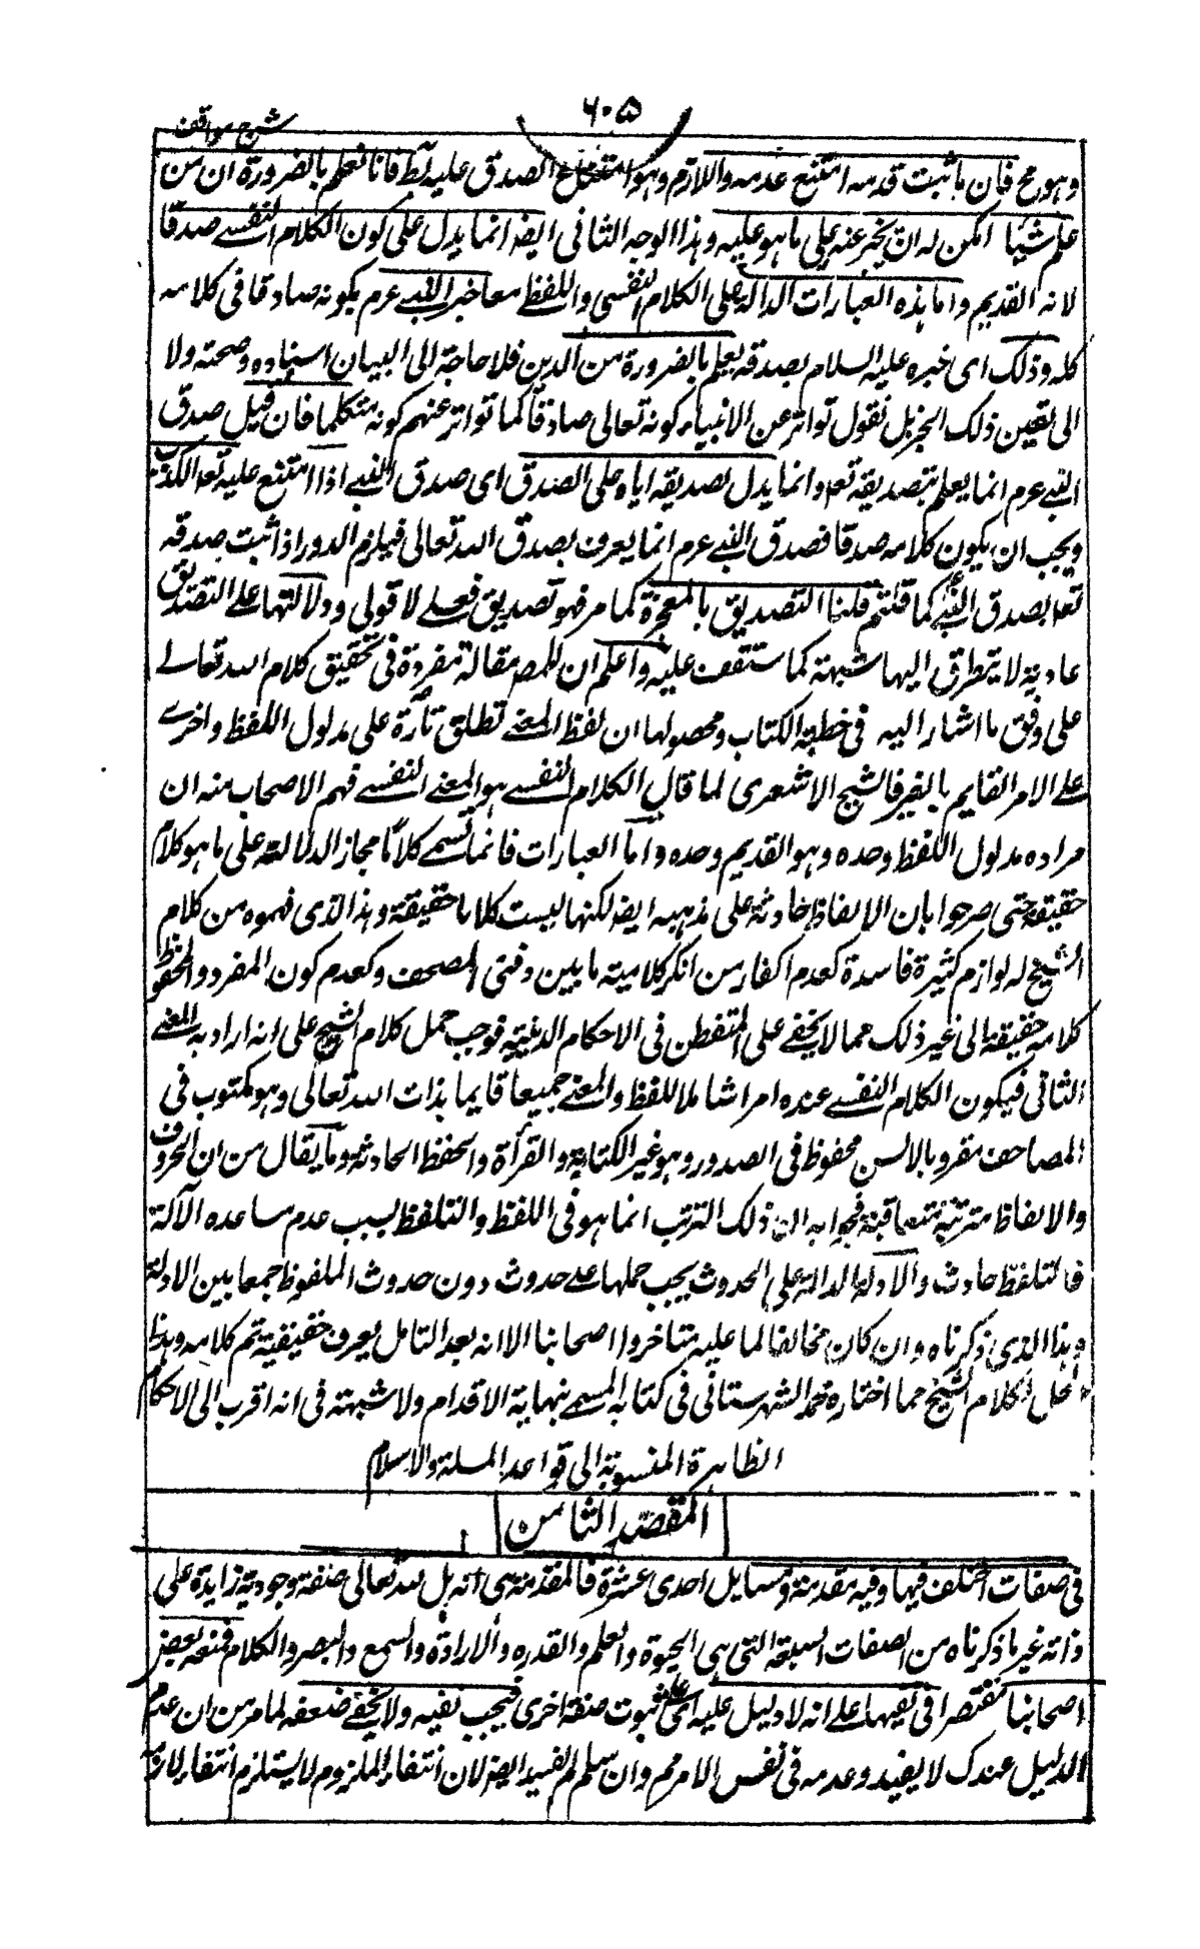 ٦٠٥
شرح مواقف
وهو مح فان ما ثبت قدمه امتنع عدمه واللازم وهو امتناع الصدق عليه بط فانا نعلم بالضرورة ان من
علم شيئا امكن له ان يخبر عنه على ما هو عليه وهذا الوجه الثانى ايضا انما يدل على كون الكلام النفسے صدقا
لانه القديم واما هذه العبارات الدالة على الكلام النفسى واللفظ معا خبر النبے عرم بكونه صادقا فى كلامه
كله وذلك اى خبره عليه السلام بصدقه يعلم بالضرورة من الدين فلا حاجة الى البيان اسناده وصحته ولا
الى يقين ذلك الخبر بل نقول تواتر عن الانبياء كونه تعالى صادقا كما تواتر عنهم كونه متكلما فان قيل صدق
النبے عرم انما يعلم بتصديقه تعا وانما يدل تصديقه اياه على الصدق اى صدق النبے اذا امتنع عليه تعا الكذب
ويجب ان يكون كلامه صدقا فصدق النبے عرم انما يعرف بصدق الله تعالى فيلزم الدور اذ اثبت صدقه
تعا بصدق النبے كما قلتم قلنا التصديق بالمعجزة كما مر فهو تصديق فعلے لا قولى ودلالتها علے التصديق
عادية لا يتطرق اليها شبهة كما ستقف عليه واعلم ان للمص مقالة مفردة فى تحقيق كلام الله تعالے
على وفق ما اشار اليه فى خطبة الكتاب ومحصولها ان لفظ المعنے تطلق تارة على مدلول اللفظ واخرے
علے الامر القايم بالغير فالشيخ الاشعرى لما قال الكلام النفسے هو المعنے النفسے فهم الاصحاب منه ان
مراده مدلول اللفظ وحده وهو القديم وحده واما العبارات فانما تسمے كلاما مجاز الدلالته على ما هو كلام
حقيقة حتى صرحوا بان الالفاظ حادثة على مذهبه ايضا لكنها ليست كلاما حقيقة وهذا الذى فهموه من كلام
الشيخ له لوازم كثيرة فاسدة كعدم اكفار من انكر كلامية ما بين دفتى المصحف وكعدم كون المقرو والمحفوظ
كلامه حقيقة الى غير ذلك مما لا يخفے على المتفطن فى الاحكام الدينية فوجب حمل كلام الشيخ على انه اراد به المعنے
الثانى فيكون الكلام النفسے عنده امرا شاملا للفظ والمعنے جميعا قايما بذات الله تعالى وهو مكتوب فى
المصاحف مقرو بالالسن محفوظ فى الصدور وهو غير الكتابة والقرأة والحفظ الحادثة وما يقال من ان الحروف
والالفاظ مترتبة متعاقبة فجوابه ان ذلك الترتب انما هو فى اللفظ والتلفظ بسبب عدم مساعده الآلة
فالتلفظ حادث والادلة الدالة على الحدوث يجب حملها علے حدوث دون حدوث الملفوظ جمعا بين الادلة
وهذا الذى ذكرناه وان كان مخالفا لما عليه متاخروا اصحابنا الا انه بعد التامل يعرف حقيقية تم كلامه وهذا
المحل لكلام الشيخ مما اختاره محمد الشهرستانى فى كتابه المسمے بنهاية الاقدام ولا شبهة فى انه اقرب الى الاحكام
الظاهرة المنسوبة الى قواعد الملة والاسلام
المقصد الثامن
فى صفات اختلف فيها وفيه مقدمة ومسايل احدى عشرة فالمقدمة هى انه هل لله تعالى صفة وجودية زايدة على
ذاته غير ما ذكرناه من الصفات السبعة التى هى الحيوة والعلم والقدره والارادة والسمع والبصر والكلام فمنعه بعض
اصحابنا مقتصرا فى نفيها علے انه لا دليل عليه اى على ثبوت صفة اخرى فيجب نفيه ولا يخفے ضعفه لما مر من ان عدم
الدليل عندك لا يفيد وعدمه فى نفس الامر مم وان سلم لم يفيد ايضا لان انتفاء الملزوم لا يستلزم انتفاء لازمه